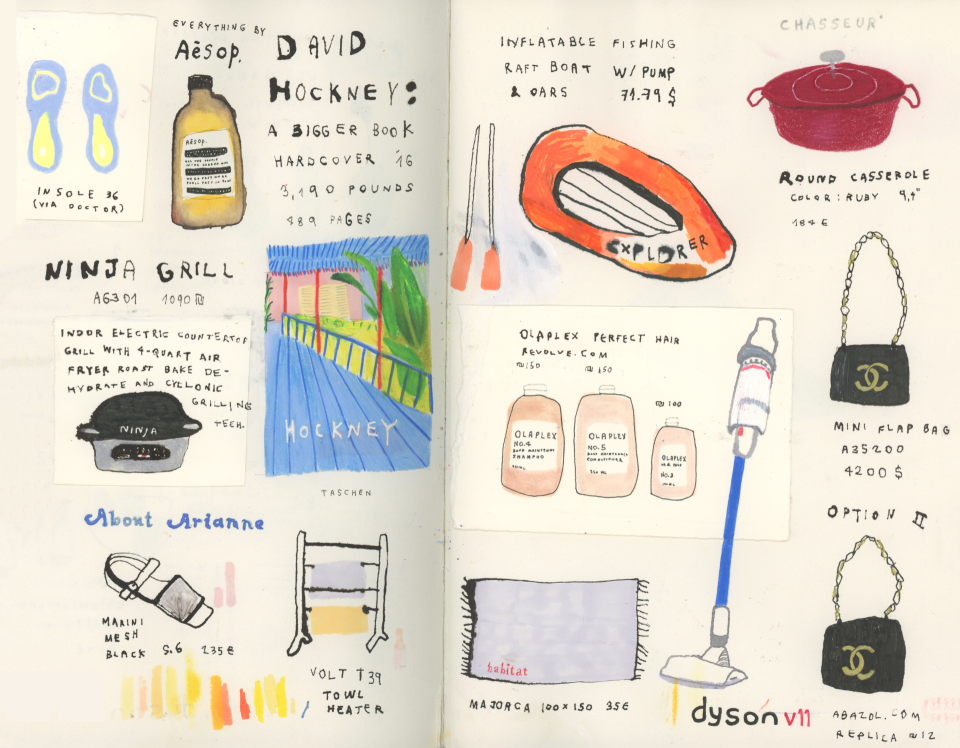 INSOLE 36
(VIA DOCTOR)
EVERYTHING BY
Aēsop.
Aēsop.
DAVID
HOCKNEY:
A BIGGER BOOK
HARDCOVER '16
3,190 POUNDS
489 PAGES
HOCKNEY
TASCHEN
NINJA GRILL
AG301 1090 ₪
INDOR ELECTRIC COUNTERTOP
GRILL WITH 4-QUART AIR
FRYER ROAST BAKE DE-
HYDRATE AND CYCLONIC
GRILLING
TECH.
NINJA
About Arianne
MARINI
MESH
BLACK S.6 235€
VOLT T39
TOWL
HEATER
INFLATABLE FISHING
RAFT BOAT W/ PUMP
& OARS 71.79 $
EXPLORER
CHASSEUR
ROUND CASSEROLE
COLOR: RUBY 9,4"
184 €
OLAPLEX PERFECT HAIR
REVOLVE.COM
₪150 ₪150
₪100
OLAPLEX
NO.4
BOND MAINTENANCE
SHAMPOO
250ML
OLAPLEX
NO.5
BOND MAINTENANCE
CONDITIONER
250 ML
OLAPLEX
NO.3
MINI FLAP BAG
A35200
4200 $
OPTION II
habitat
MAJORCA 100×150 35€
dyson v11
ABAZOL.COM
REPLICA ₪12